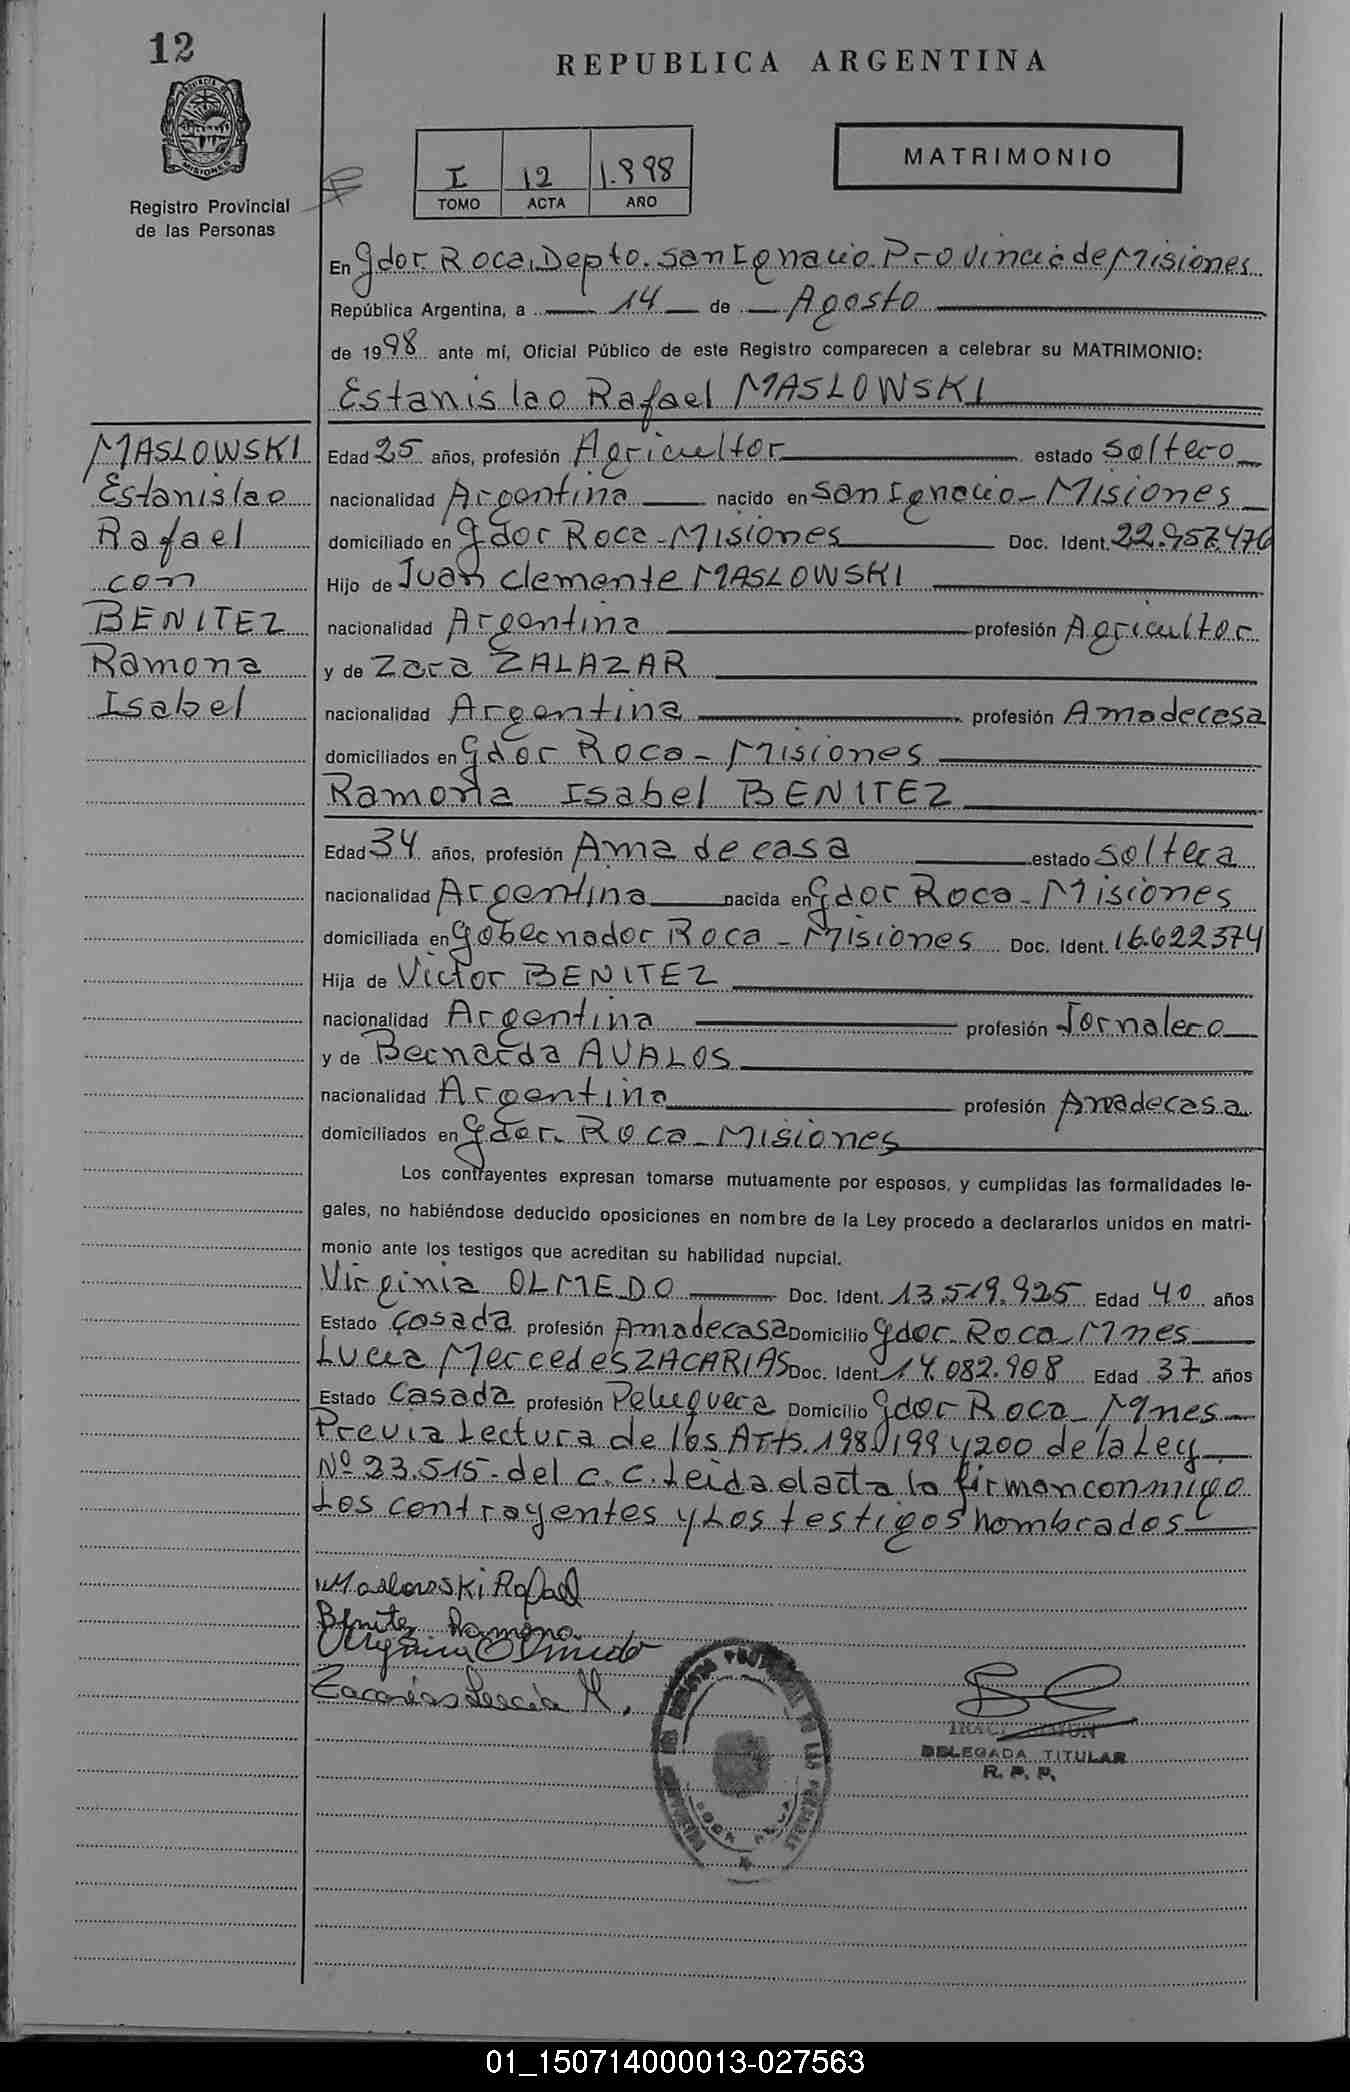 12
REPUBLICA ARGENTINA
PROVINCIA DE
MISIONES
Registro Provincial
de las Personas
I 12 1.998
TOMO ACTA AÑO
MATRIMONIO
En Gdor. Roca, Depto. San Ignacio Provincia de Misiones
República Argentina, a 14 de Agosto
de 1998 ante mí, Oficial Público de este Registro comparecen a celebrar su MATRIMONIO:
Estanislao Rafael MASLOWSKI
MASLOWSKI
Estanislao
Rafael
con
BENITEZ
Ramona
Isabel
Edad 25 años, profesión Agricultor estado Soltero
nacionalidad Argentina nacido en San Ignacio - Misiones
domiciliado en Gdor Roca - Misiones Doc. Ident. 22.957.476
Hijo de Juan Clemente MASLOWSKI
nacionalidad Argentina profesión Agricultor
y de Zara ZALAZAR
nacionalidad Argentina profesión Amadecasa
domiciliados en Gdor Roca - Misiones
Ramona Isabel BENITEZ
Edad 34 años, profesión Ama de casa estado Soltera
nacionalidad Argentina nacida en Gdor Roca - Misiones
domiciliada en Gobernador Roca - Misiones Doc. Ident. 16.622374
Hija de Victor BENITEZ
nacionalidad Argentina profesión Jornalero
y de Bernarda AVALOS
nacionalidad Argentina profesión Amadecasa
domiciliados en Gdor. Roca - Misiones
Los contrayentes expresan tomarse mutuamente por esposos, y cumplidas las formalidades le-
gales, no habiéndose deducido oposiciones en nombre de la Ley procedo a declararlos unidos en matri-
monio ante los testigos que acreditan su habilidad nupcial.
Virginia OLMEDO Doc. Ident. 13.519.925 Edad 40 años
Estado Casada profesión Amadecasa Domicilio Gdor. Roca - Mnes
Lucia Mercedes ZACARIAS Doc. Ident. 14.082.908 Edad 37 años
Estado Casada profesión Peluquera Domicilio Gdor Roca - Mnes
Previa Lectura de los Arts. 198, 199 y 200 de la Ley
Nº 23.515 - del C. C. Leida el acta la firman conmigo
Los contrayentes y Los testigos nombrados
Maslowski Rafael
Benitez Ramona
Virginia Olmedo
Zacarias Lucia M.
DELEGADA TITULAR
R. P. P.
01_150714000013-027563